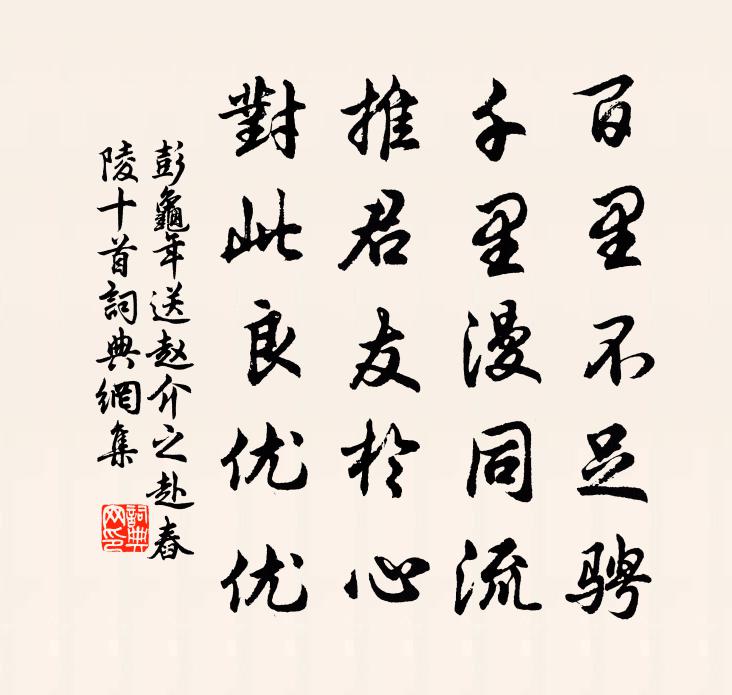 百里不足骋
千里漫同流
推君友於心
對此良优优
彭龜年送赵介之赴舂
陵十首詞典網集
詞典网印